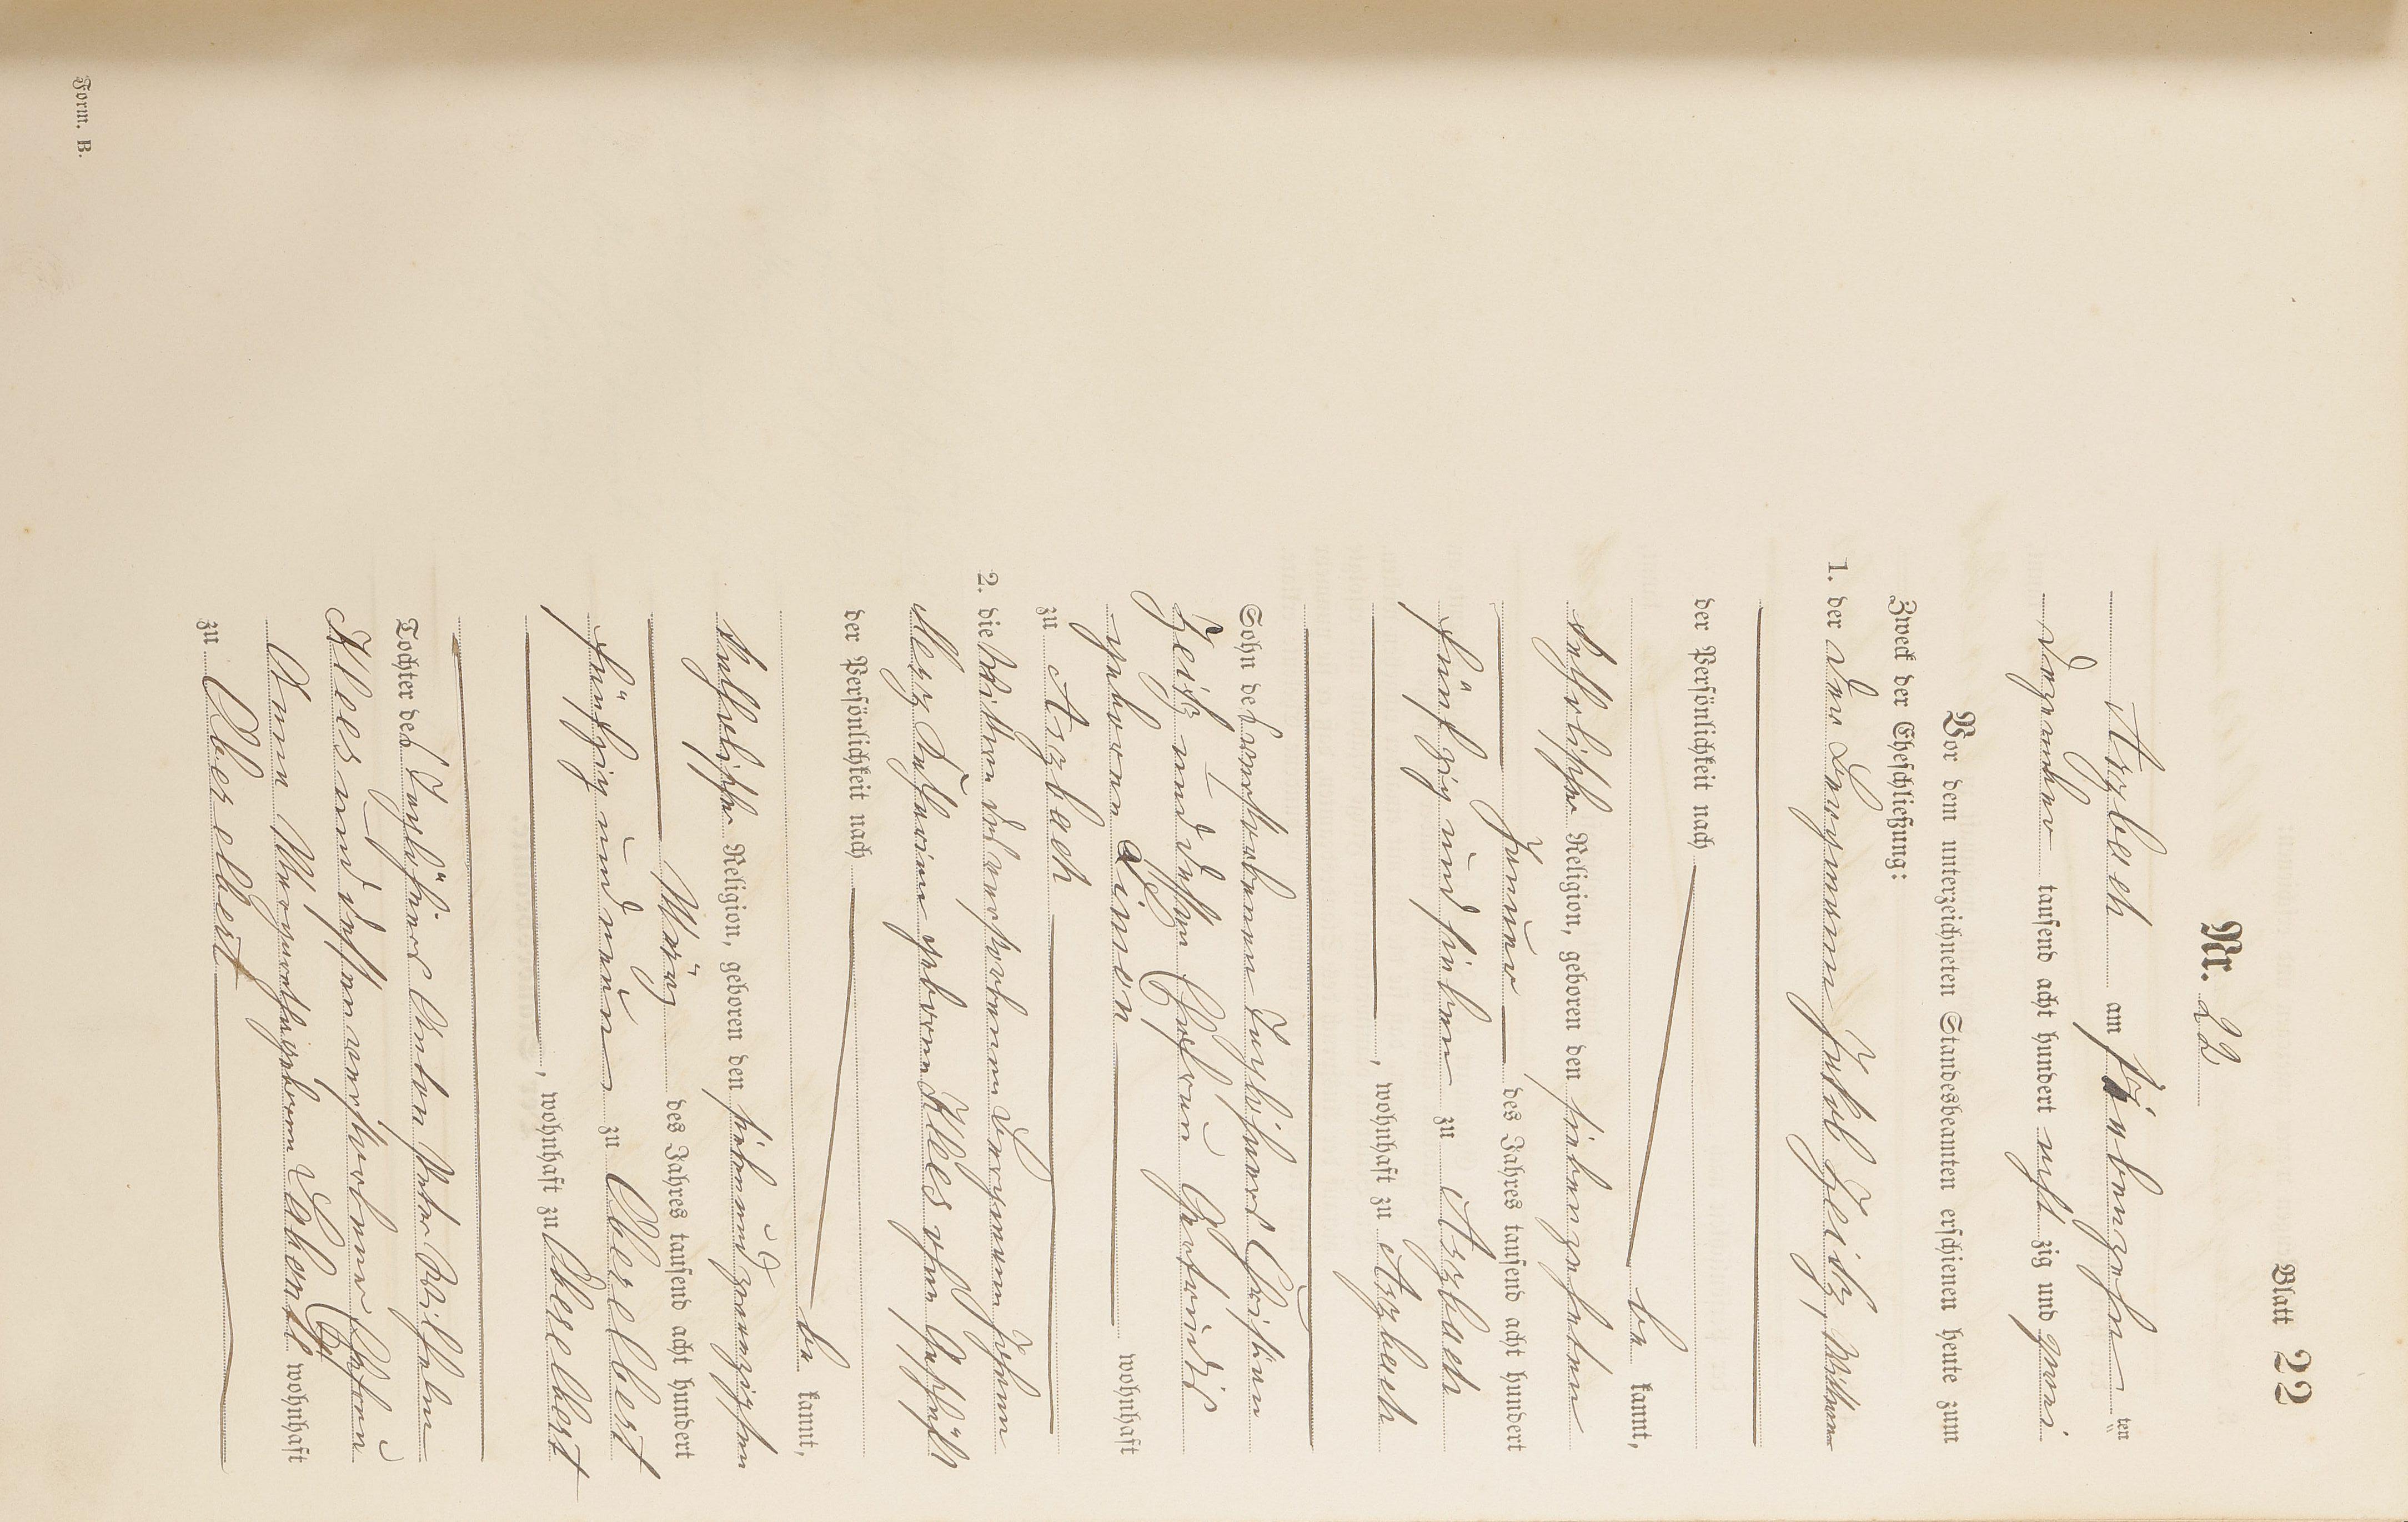 Blatt 22
Nr. 22
Arzbach am siebenzehn ten
Dezember tausend acht hundert acht zig und zwei
Vor dem unterzeichneten Standesbeamten erschienen heute zum
Zweck der Eheschließung:
1. der der Bergmann Jakob Zeitz, Wittwer
der Persönlichkeit nach
be kannt,
katholischer Religion, geboren den siebenzehnten
Januar des Jahres tausend acht hundert
fünfzig und sieben zu Arzbach
, wohnhaft zu Arzbach
Sohn des verstorbenen Taglöhners Christian
Zeitz und dessen Ehefrau Gertrude
geborene Simon wohnhaft
zu Arzbach
2. die Wittwe des verstorbenen Bergmann Johann
Merz Katharina geborne Klees ohne Geschäft
der Persönlichkeit nach
be kannt,
katholischer Religion, geboren den siebenundzwanzigsten
März des Jahres tausend acht hundert
fünfzig und neun zu Oberelbert
, wohnhaft zu Oberelbert
Tochter des Taglöhners Anton Peter Wilhelm
Klees und dessen verstorbener Ehefrau
Anna Margaretha geborene wohnhaft
zu Oberelbert
Form. B.